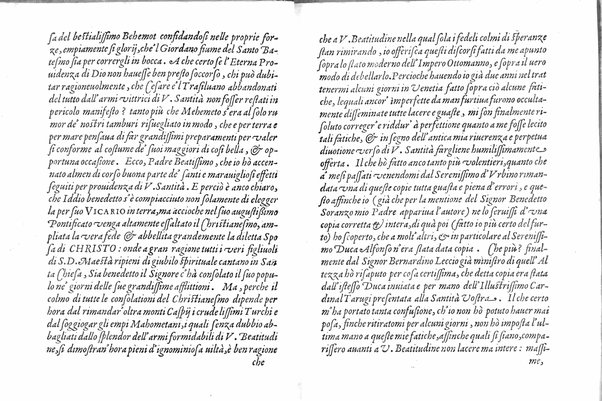 sa del bestialissimo Behemot confidandosi nelle proprie for-
ze, empiamente si glorij, che'l Giordano fiume del Santo Ba-
tesmo sia per correrglj in bocca. A che certo se l'Eterna Pro-
uidenza di Dio non hauesse ben presto soccorso, chi può dubi-
tar ragioneuolmente, che Cesare e'l Trasiluano abbandonati
del tutto dall'armi vittrici di V. Santità non fosser restati in
pericolo manifesto? tanto più che Mehemeto s'era al solo ru
mor de' nostri tamburi risuegliato in modo, che e per terra e
per mare pensaua di far grandissimi preparamenti per valer
si conforme al costume de' suoi maggiori di così bella, & op-
portuna occasione. Ecco, Padre Beatissimo, che io hò accen-
nato almen di corso buona parte de' santi e marauigliosi effetti
seguiti per prouidenza di V. Santità. E perciò è anco chiaro,
che Iddio benedetto s'è compiacciuto non solamente di elegger
la per suo VICARIO in terra, ma accioche nel suo augustissimo
Pontificato venga altamente essaltato il Christianesmo, am-
pliata la vera fede & abbellita grandemente la diletta Spo
sa di CHRISTO: onde a gran ragione tutti i veri figliuoli
di S.D. Maestà ripieni di giubilo Spirituale cantano in San
ta Chiesa, Sia benedetto il Signore c'hà consolato il suo popu
lo ne' giorni delle sue grandissime afflittioni. Ma, perche il
colmo di tutte le consolationi del Christianesmo dipende per
hora dal rimandar oltra monti Caspij i crudelissimi Turchi e
dal soggiogar gli empi Mahometani, i quali senza dubbio ab-
bagliati dallo splendor dell'armi formidabili di V. Beatitudi
ne, si dimostran'hora pieni d'ignominiosa viltà, è ben ragione
che
che a V. Beatitudine nella qual sola i fedeli colmi di speranze
stan rimirando, io offerisca questi discorsi fatti da me apunto
sopra lo stato moderno dell'Imperio Ottomanno, e sopra il uero
modo di debellarlo. Percioche hauendo io già due anni nel trat
tenermi alcuni giorni in Venetia fatto sopra ciò alcune fati-
che, lequali ancor' imperfette da man furtiua furono occulta-
mente disseminate tutte lacere e guaste, mi son finalmente ri-
soluto correger e riddur' à perfettione quanto a me fosse lecito
tali fatiche, & in segno dell'antica mia riuerenza e perpetua
diuotione verso di V. Santità fargliene humilissimamente
offerta. Il che hò fatto anco tanto più volentieri, quanto che
a' mesi passati venendomi dal Serenissimo d'Vrbino riman-
data vna di queste copie tutta guasta e piena d'errori, e que-
sto affinche io (già che per la mention del Signor Benedetto
Soranzo mio Padre appariua l'autore) ne lo seruissi d'vna
copia corretta & intera, di quà poi (fatto io più certo del fur
to) hò scoperto, che a molt'altri, & in particolare al Serenissi-
mo Duca Alfonso n'era stata data copia. Che più? final-
mente dal Signor Bernardino Leccio già ministro di quell'Al
tezza hò risaputo per cosa certissima, che detta copia era stata
dall'istesso Duca inuiata e per mano dell'Illustrissimo Car-
dinal Tarugi presentata alla Santità Vostra. Il che certo
m'ha portato tanta confusione, ch'io non hò potuto hauer mai
posa, sinche ritiratomi per alcuni giorni, non hò imposta l'ul-
tima mano a queste mie fatiche, affinche quali si siano, compa-
rissero auanti a V. Beatitudine non lacere ma intere: massi-
me,